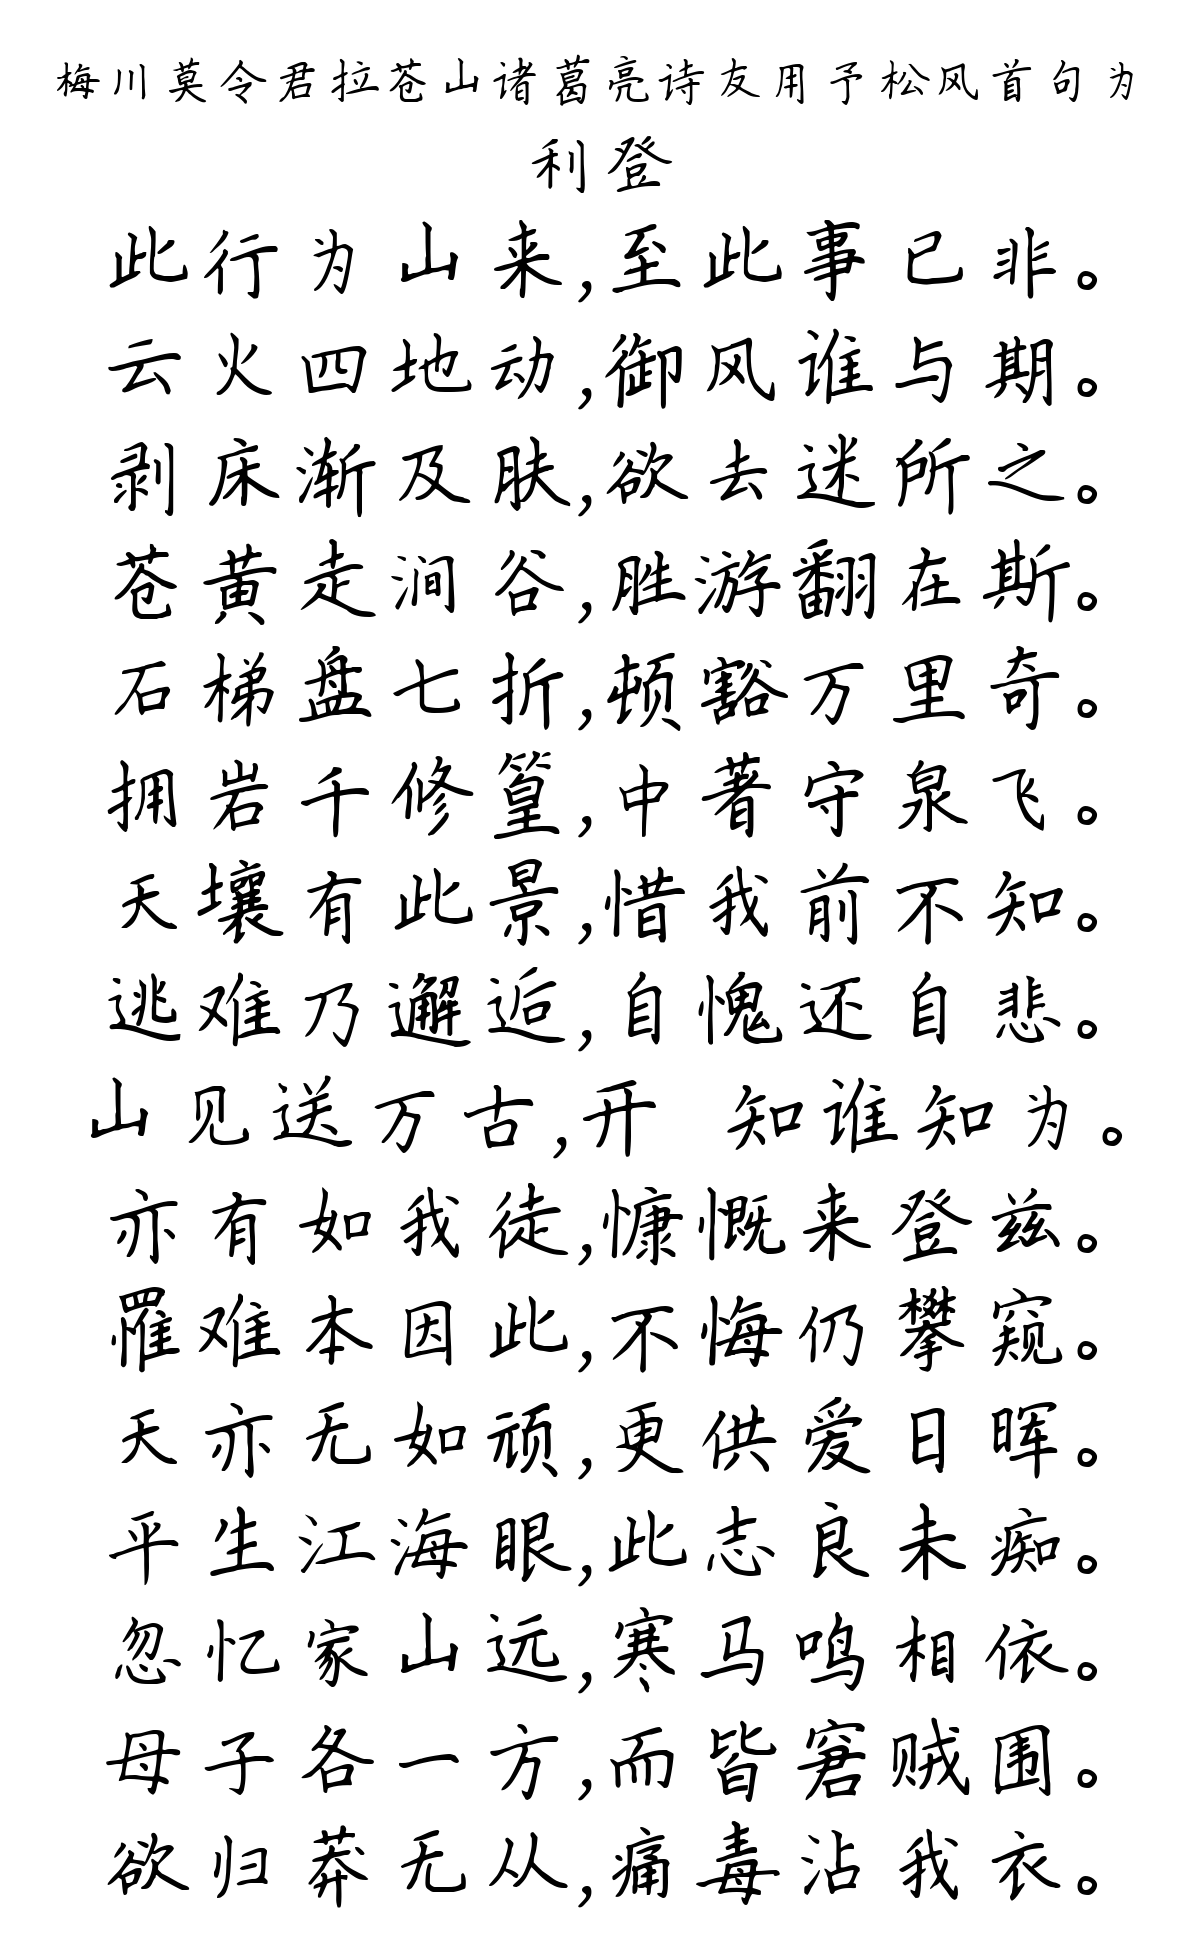 梅川莫令君拉苍山诸葛亮诗友用予松风首句为
利登
此行为山来,至此事已非。
云火四地动,御风谁与期。
剥床渐及肤,欲去迷所之。
苍黄走涧谷,胜游翻在斯。
石梯盘七折,顿豁万里奇。
拥岩千修篁,中著守泉飞。
天壤有此景,惜我前不知。
逃难乃邂逅,自愧还自悲。
山见送万古,开 知谁知为。
亦有如我徒,慷慨来登兹。
罹难本因此,不悔仍攀窥。
天亦无如顽,更供爱日晖。
平生江海眼,此志良未痴。
忽忆家山远,寒马鸣相依。
母子各一方,而皆窘贼围。
欲归莽无从,痛毒沾我衣。